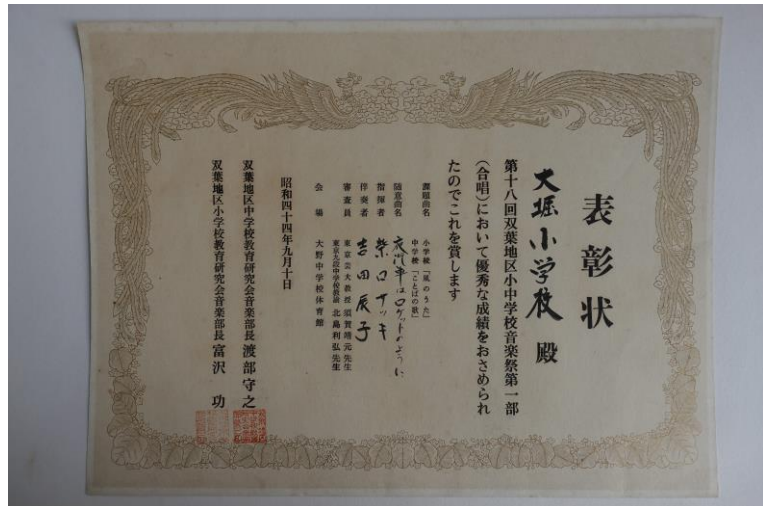 表彰状
大堀小学校 殿
第十八回双葉地区小中学校音楽祭第一部
(合唱)において優秀な成績をおさめられ
たのでこれを賞します
課題曲名 小学校「風のうた」
中学校「ことばの歌」
随意曲名 夜汽車はロケットのように
指揮者 柴口ナツキ
伴奏者 吉田辰子
審査員 東京芸大教授 須賀靖元先生
東京九段中学校教諭 北島利弘先生
会場 大野中学校体育館
昭和四十四年九月十日
双葉地区中学校教育研究会音楽部長 渡部守之
双葉地区小学校教育研究会音楽部長 富沢功